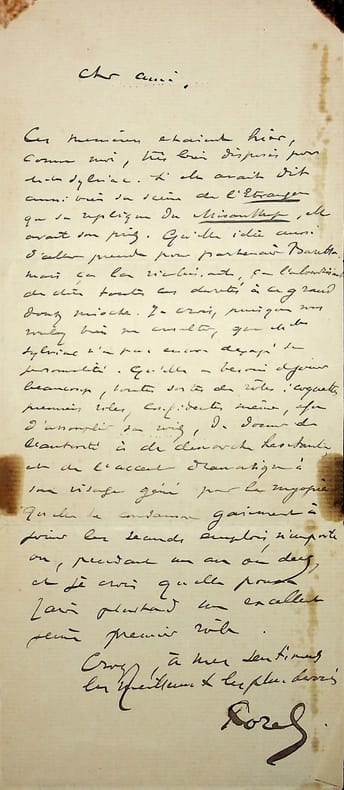 Cher ami,
Ces messieurs étaient hier,
comme moi, très bien disposés pour
Sylviac. Si elle avait dit
aussi bien sa scène de l'Etrangère
que sa réplique du Misanthrope, elle
avait son prix. Quelle idée aussi
d'aller prendre pour partenaire Baretta
mais ça la
de dire toutes ces duretés à ce grand
doux mioche. Je crois, puisque vous
voulez bien me consulter, que
Sylviac n'a pas encore dégagé sa
personnalité. Qu'elle a besoin de jouer
beaucoup, toutes sortes de rôles : coquettes
premiers rôles, confidentes même, afin
d'assouplir sa voix, de donner de
l'autorité à sa démarche hésitante
et de l'accent dramatique à
son visage gêné par la myopie
Qu'elle se condamne gaiement à
jouer les seconds emplois n'importe
où, pendant un an ou deux,
et je crois qu'elle pourra
faire plus tard un excellent
jeune premier rôle.
Croyez, à mes sentiments
les meilleurs & les plus dévoués
Porel